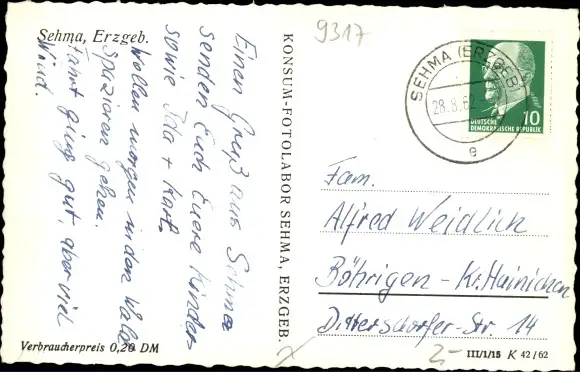 Sehma, Erzgeb.
Einen Gruß aus Sehma
senden Euch Euere Kinder
sowie Ida + Karl.
Wollen morgen in den Wald
spazieren gehen.
Fahrt ging gut, aber viel
Wind.
Verbraucherpreis 0,20 DM
KONSUM-FOTOLABOR SEHMA, ERZGEB.
9317
SEHMA (ERZGEB)
28.8.62
e
10
DEUTSCHE
DEMOKRATISCHE REPUBLIK
Fam.
Alfred Weidlich
Böhrigen - Kr. Hainichen
Dittersdorfer-Str. 14
2,-
III/1/15 K 42/62